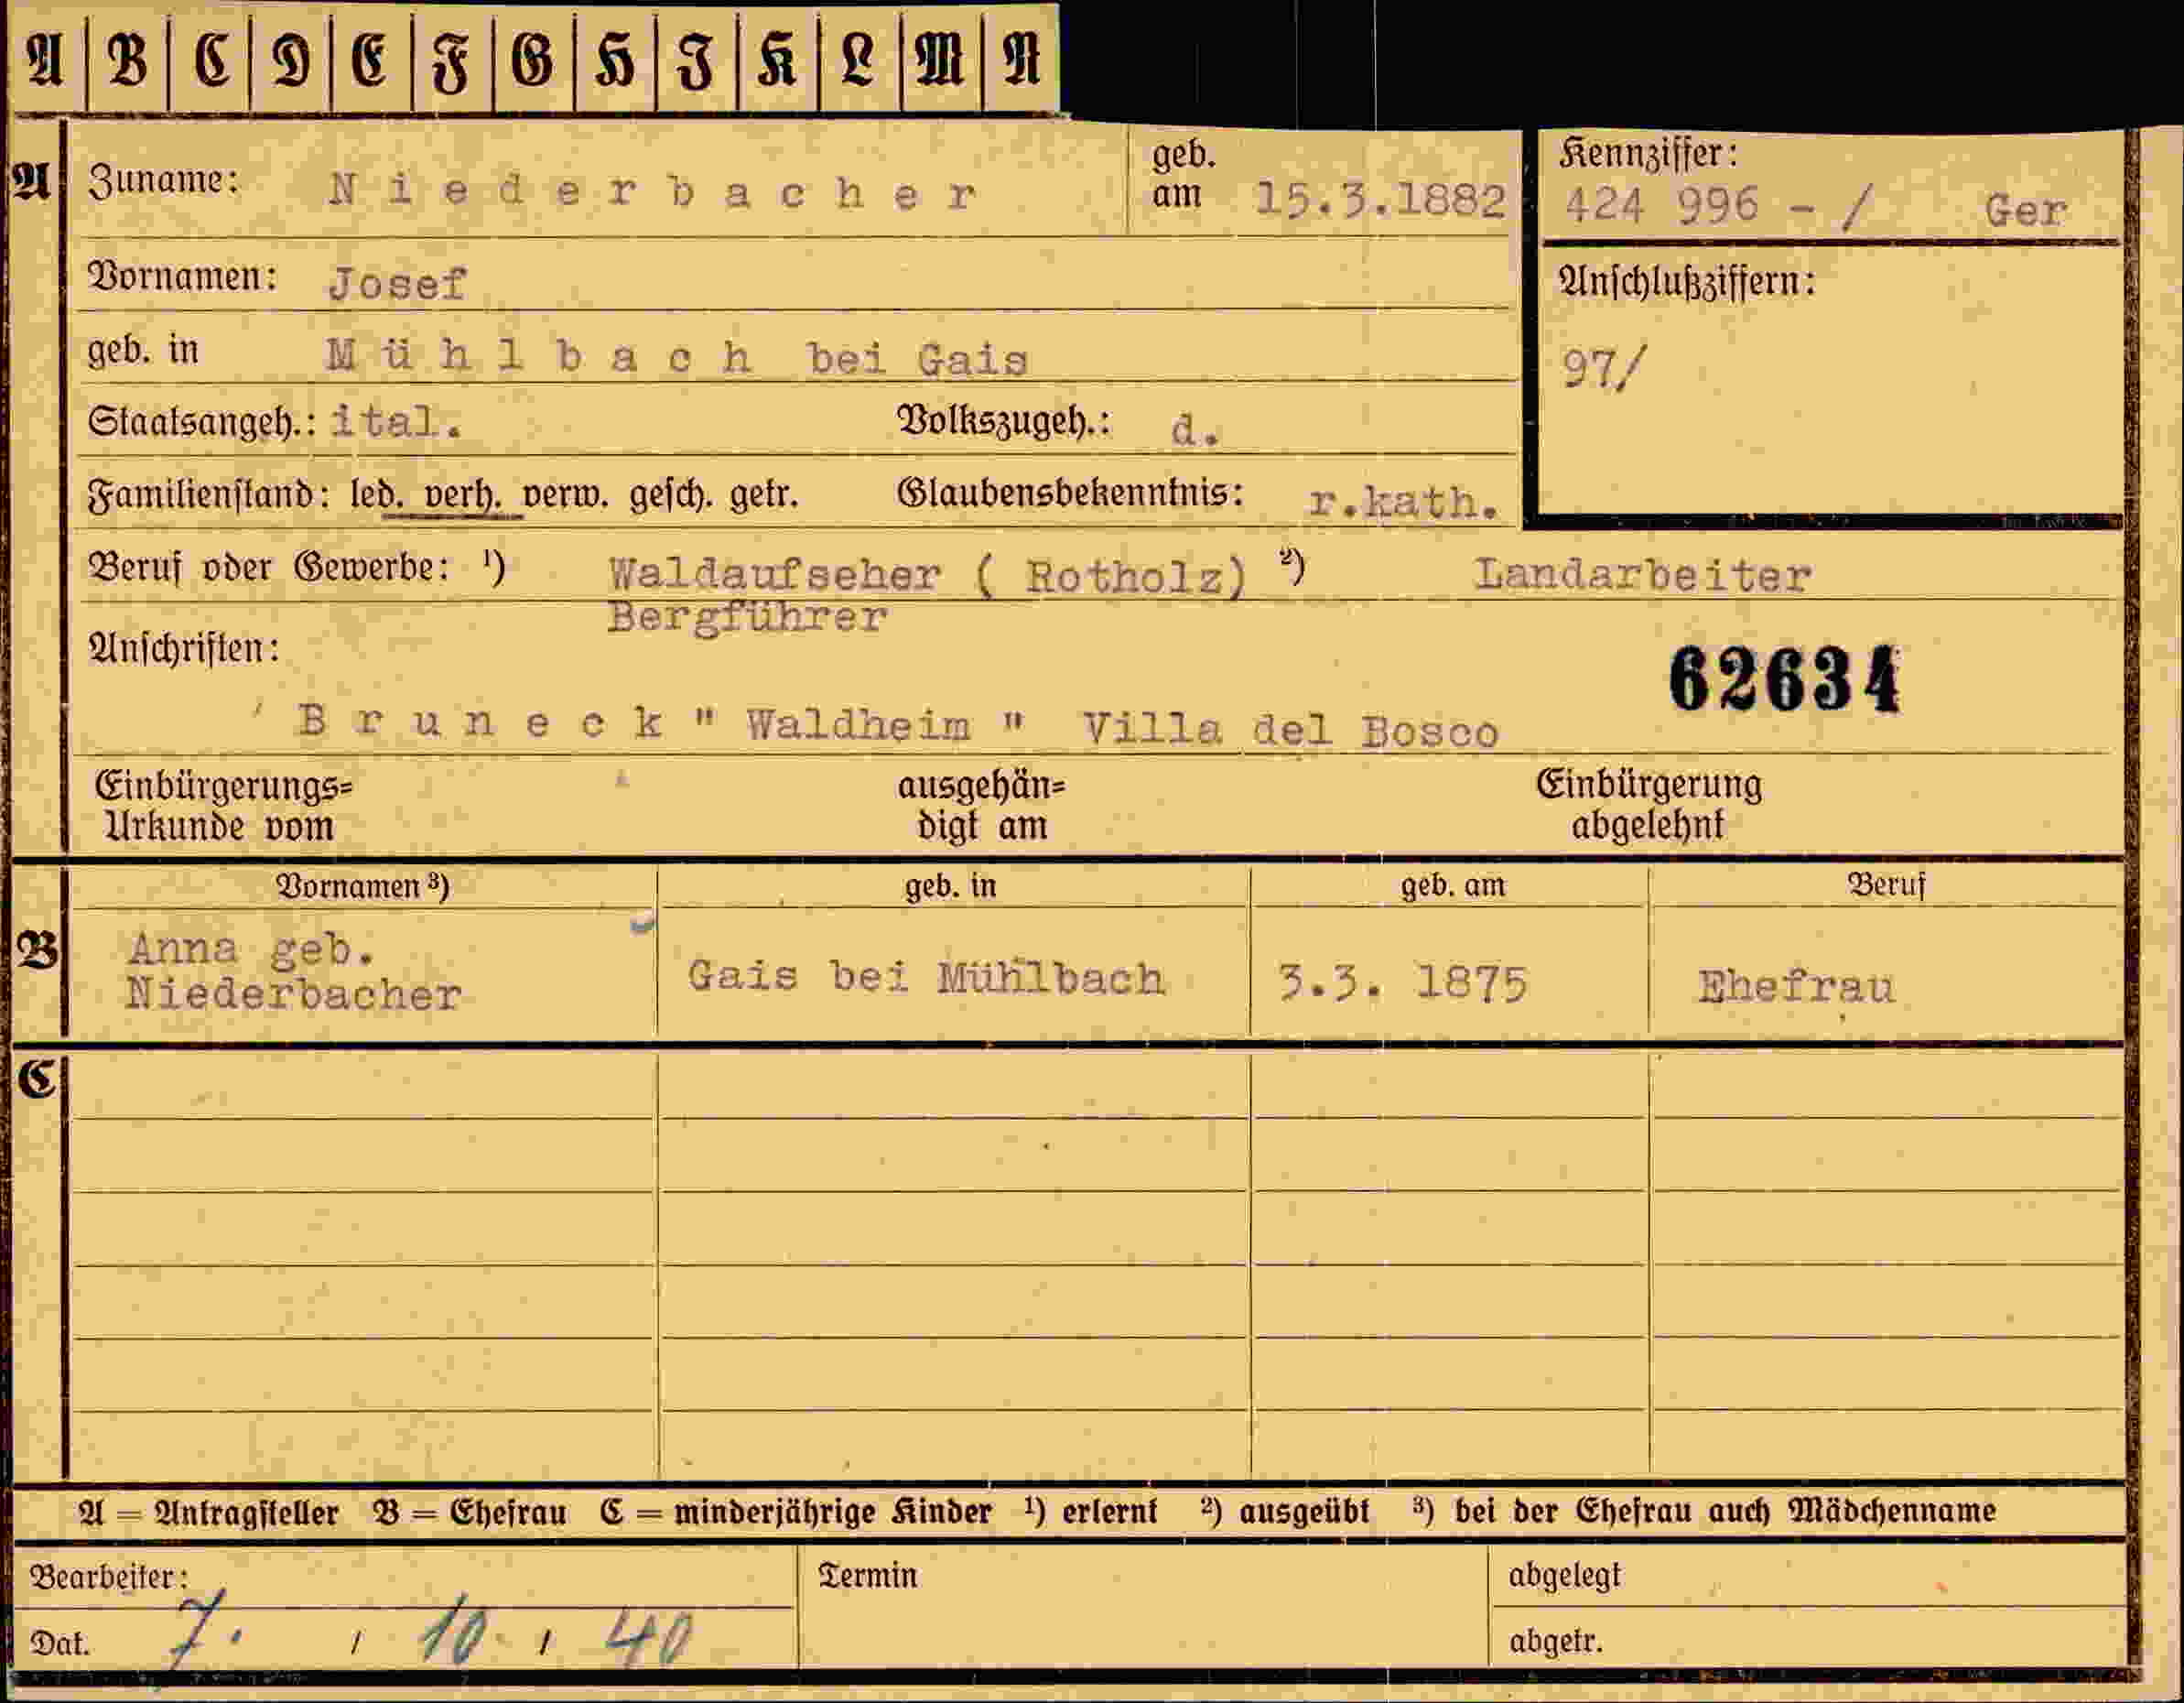 A B C D E F G H I K L M N
A Zuname: Niederbacher geb. am 15.3.1882
Kennziffer:
424 996 - / Ger
Vornamen: Josef
Anschlußziffern:
97/
geb. in Mühlbach bei Gais
Staatsangeh.: ital. Volkszugeh.: d.
Familienstand: led. verh. verw. gesch. getr. Glaubensbekenntnis: r.kath.
Beruf oder Gewerbe: ¹) Waldaufseher ( Rotholz) ²) Landarbeiter
Bergführer
Anschriften:
62634
Bruneck " Waldheim " Villa del Bosco
Einbürgerungs= ausgehän= Einbürgerung
Urkunde vom digt am abgelehnt
Vornamen ³) geb. in geb. am Beruf
B Anna geb.
Niederbacher Gais bei Mühlbach 3.3. 1875 Ehefrau
C
A = Antragsteller B = Ehefrau C = minderjährige Kinder ¹) erlernt ²) ausgeübt ³) bei der Ehefrau auch Mädchenname
Bearbeiter: Termin abgelegt
Dat. 7. / 10. / 40 abgetr.